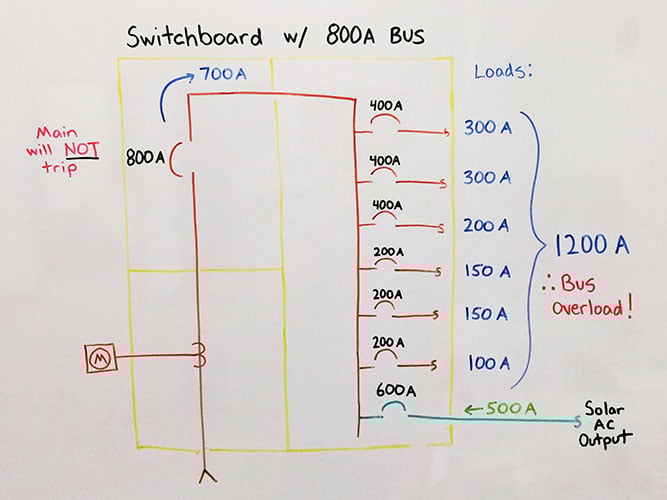 Switchboard w/ 800A BUS
700A
Loads:
Main
will NOT
trip
800A
400A
300A
400A
300A
400A
200A
200A
150A
200A
150A
200A
100A
1200A
∴ Bus
overload!
M
600A
←500A
Solar
AC
Output